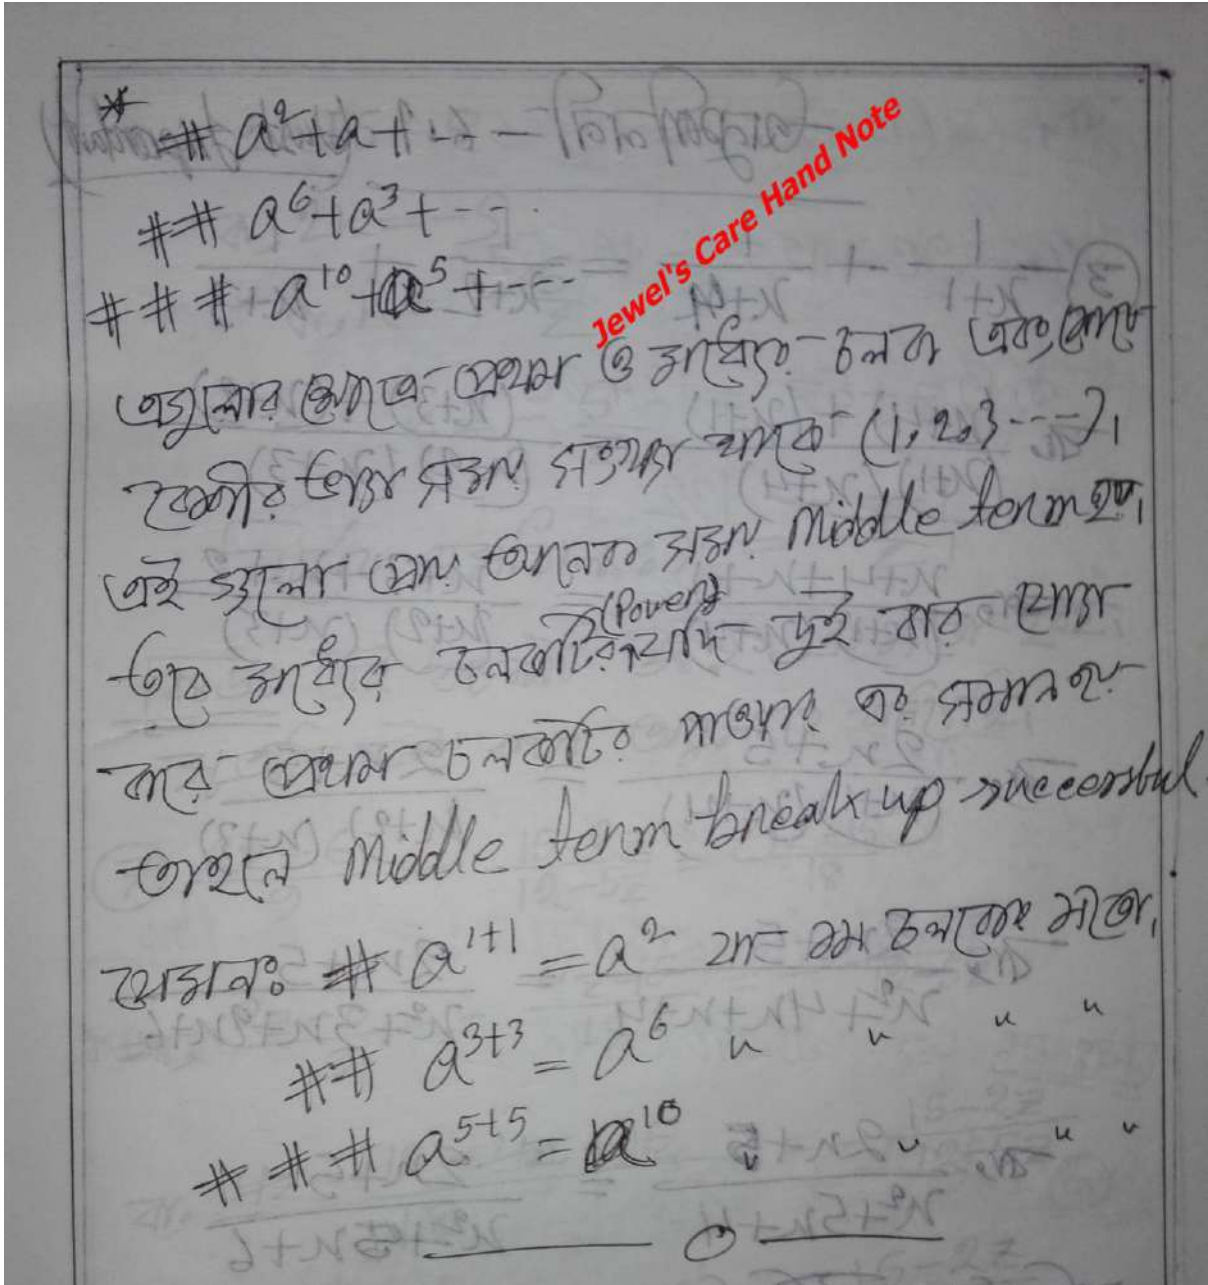 * # a²+a+---
## a⁶+a³+---
### a¹⁰+a⁵+---
Jewel's Care Hand Note
এগুলোর ক্ষেত্রে প্রথম ও মাধ্যের চলক এবং শেষে
বেশীর ভাগ সময় সংখ্যা থাকে (1, 2, 3 ---)।
এই গুলো প্রায় অনেক সময় Middle term হয়।
তবে মাধ্যের চলকটির (Power) যদি দুই বার যোগ
করে প্রথম চলকটির পাওয়ার এর সমান হয়
তাহলে Middle term break up successful.
যেমনঃ # a¹⁺¹ = a² যা ১ম চলকের মতো।
## a³⁺³ = a⁶ " " " "
### a⁵⁺⁵ = a¹⁰ " " " "